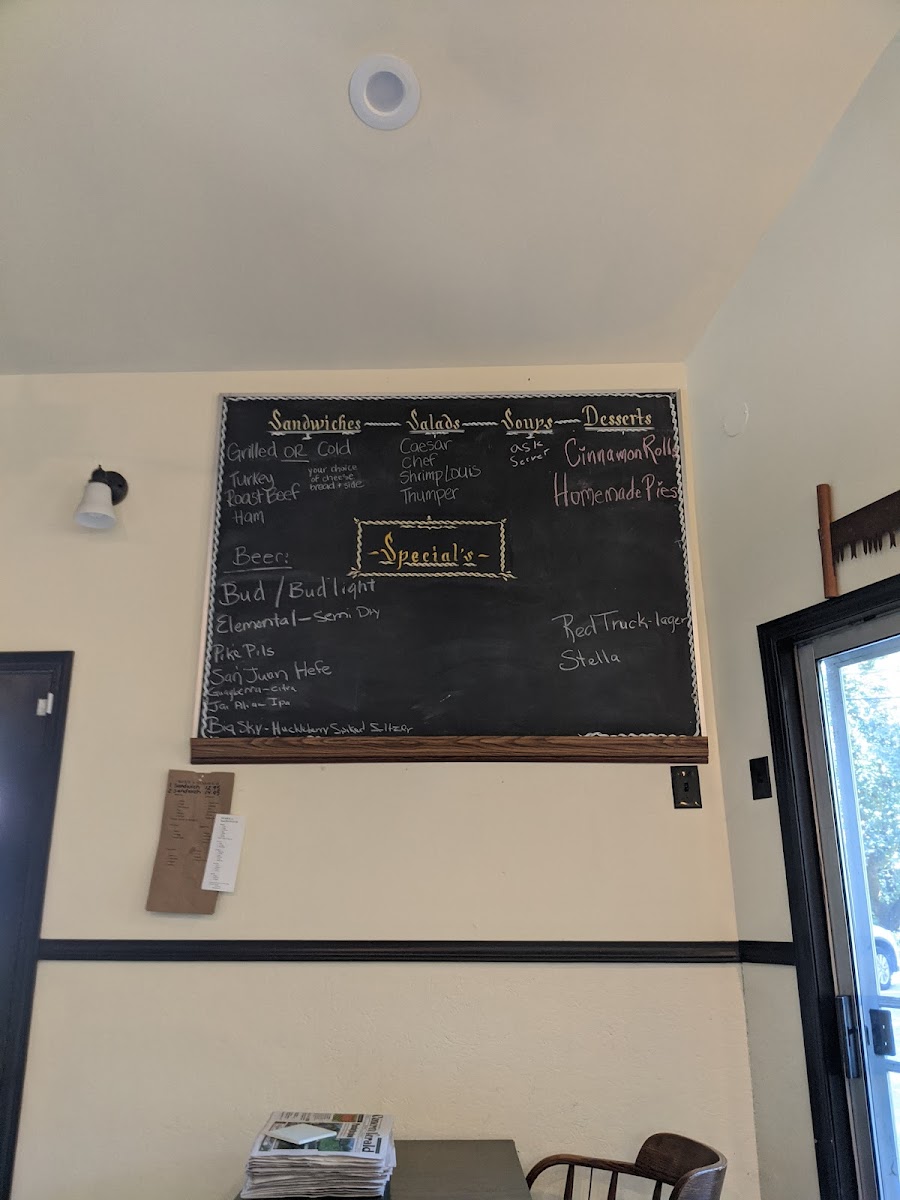 Sandwiches Salads Soups Desserts
Grilled OR Cold
your choice
of cheese
bread + side
Turkey
Roast Beef
Ham
Caesar
Chef
Shrimp Louis
Thumper
ask
Server
Cinnamon Rolls
Homemade Pies
-Special's-
Beer:
Bud / Bud light
Elemental - Semi Dry
Pike Pils
San Juan Hefe
Jai Alai - Ipa
Big Sky - Huckleberry Spiked Seltzer
Red Truck - lager
Stella